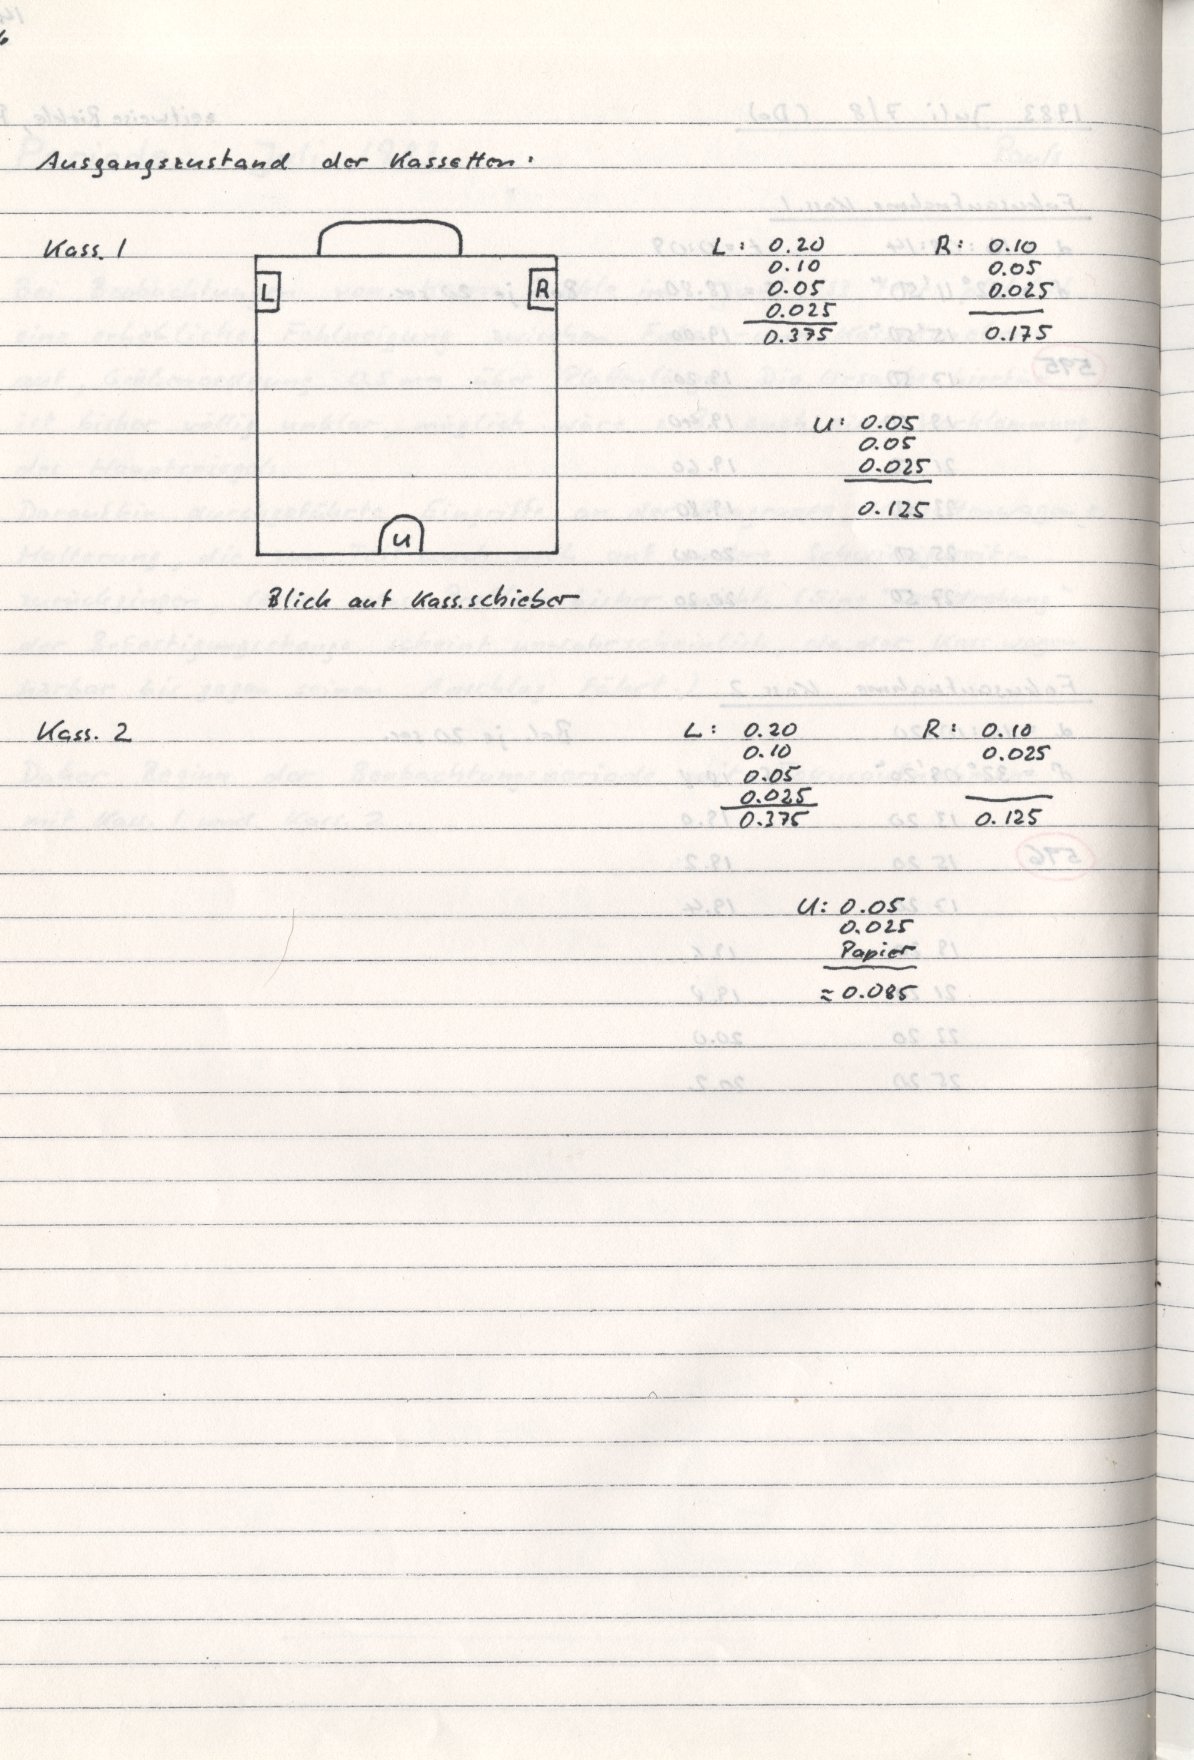 Ausgangszustand der Kassetten:
Kass. 1
L: 0.20
0.10
0.05
0.025
0.375
R: 0.10
0.05
0.025
0.175
L
R
U: 0.05
0.05
0.025
0.125
U
Blick auf Kass.schieber
Kass. 2
L: 0.20
0.10
0.05
0.025
0.375
R: 0.10
0.025
0.125
U: 0.05
0.025
Papier
≈ 0.085